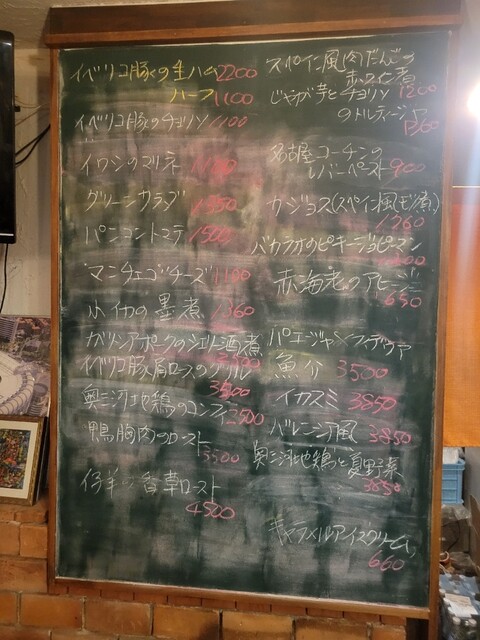 イベリコ豚の生ハム 2200
ハーフ 1100
イベリコ豚のチョリソ 1100
イワシのマリネ
グリーンサラダ
パンコントマテ
マンチェゴチーズ 1100
小イカの墨煮 1360
ガリシアポークのシェリー酒煮
イベリコ豚肩ロースのグリル
3500
奥三河地鶏のコンフィ 2500
鴨胸肉のロースト
3500
仔羊の香草ロースト
4500
スペイン風肉だんごの
赤ワイン煮
1200
じゃが芋とチョリソ
のトルティージャ
名古屋コーチンの
レバーペースト 900
カジョス(スペイン風モツ煮)
1260
バカラオのピキージョピーマン
赤海老のアヒージョ
パエージャ・フィデウア
魚介 3500
イカスミ 3850
バレンシア風 3850
奥三河地鶏と夏野菜
3850
キャラメルアイスクリーム
660